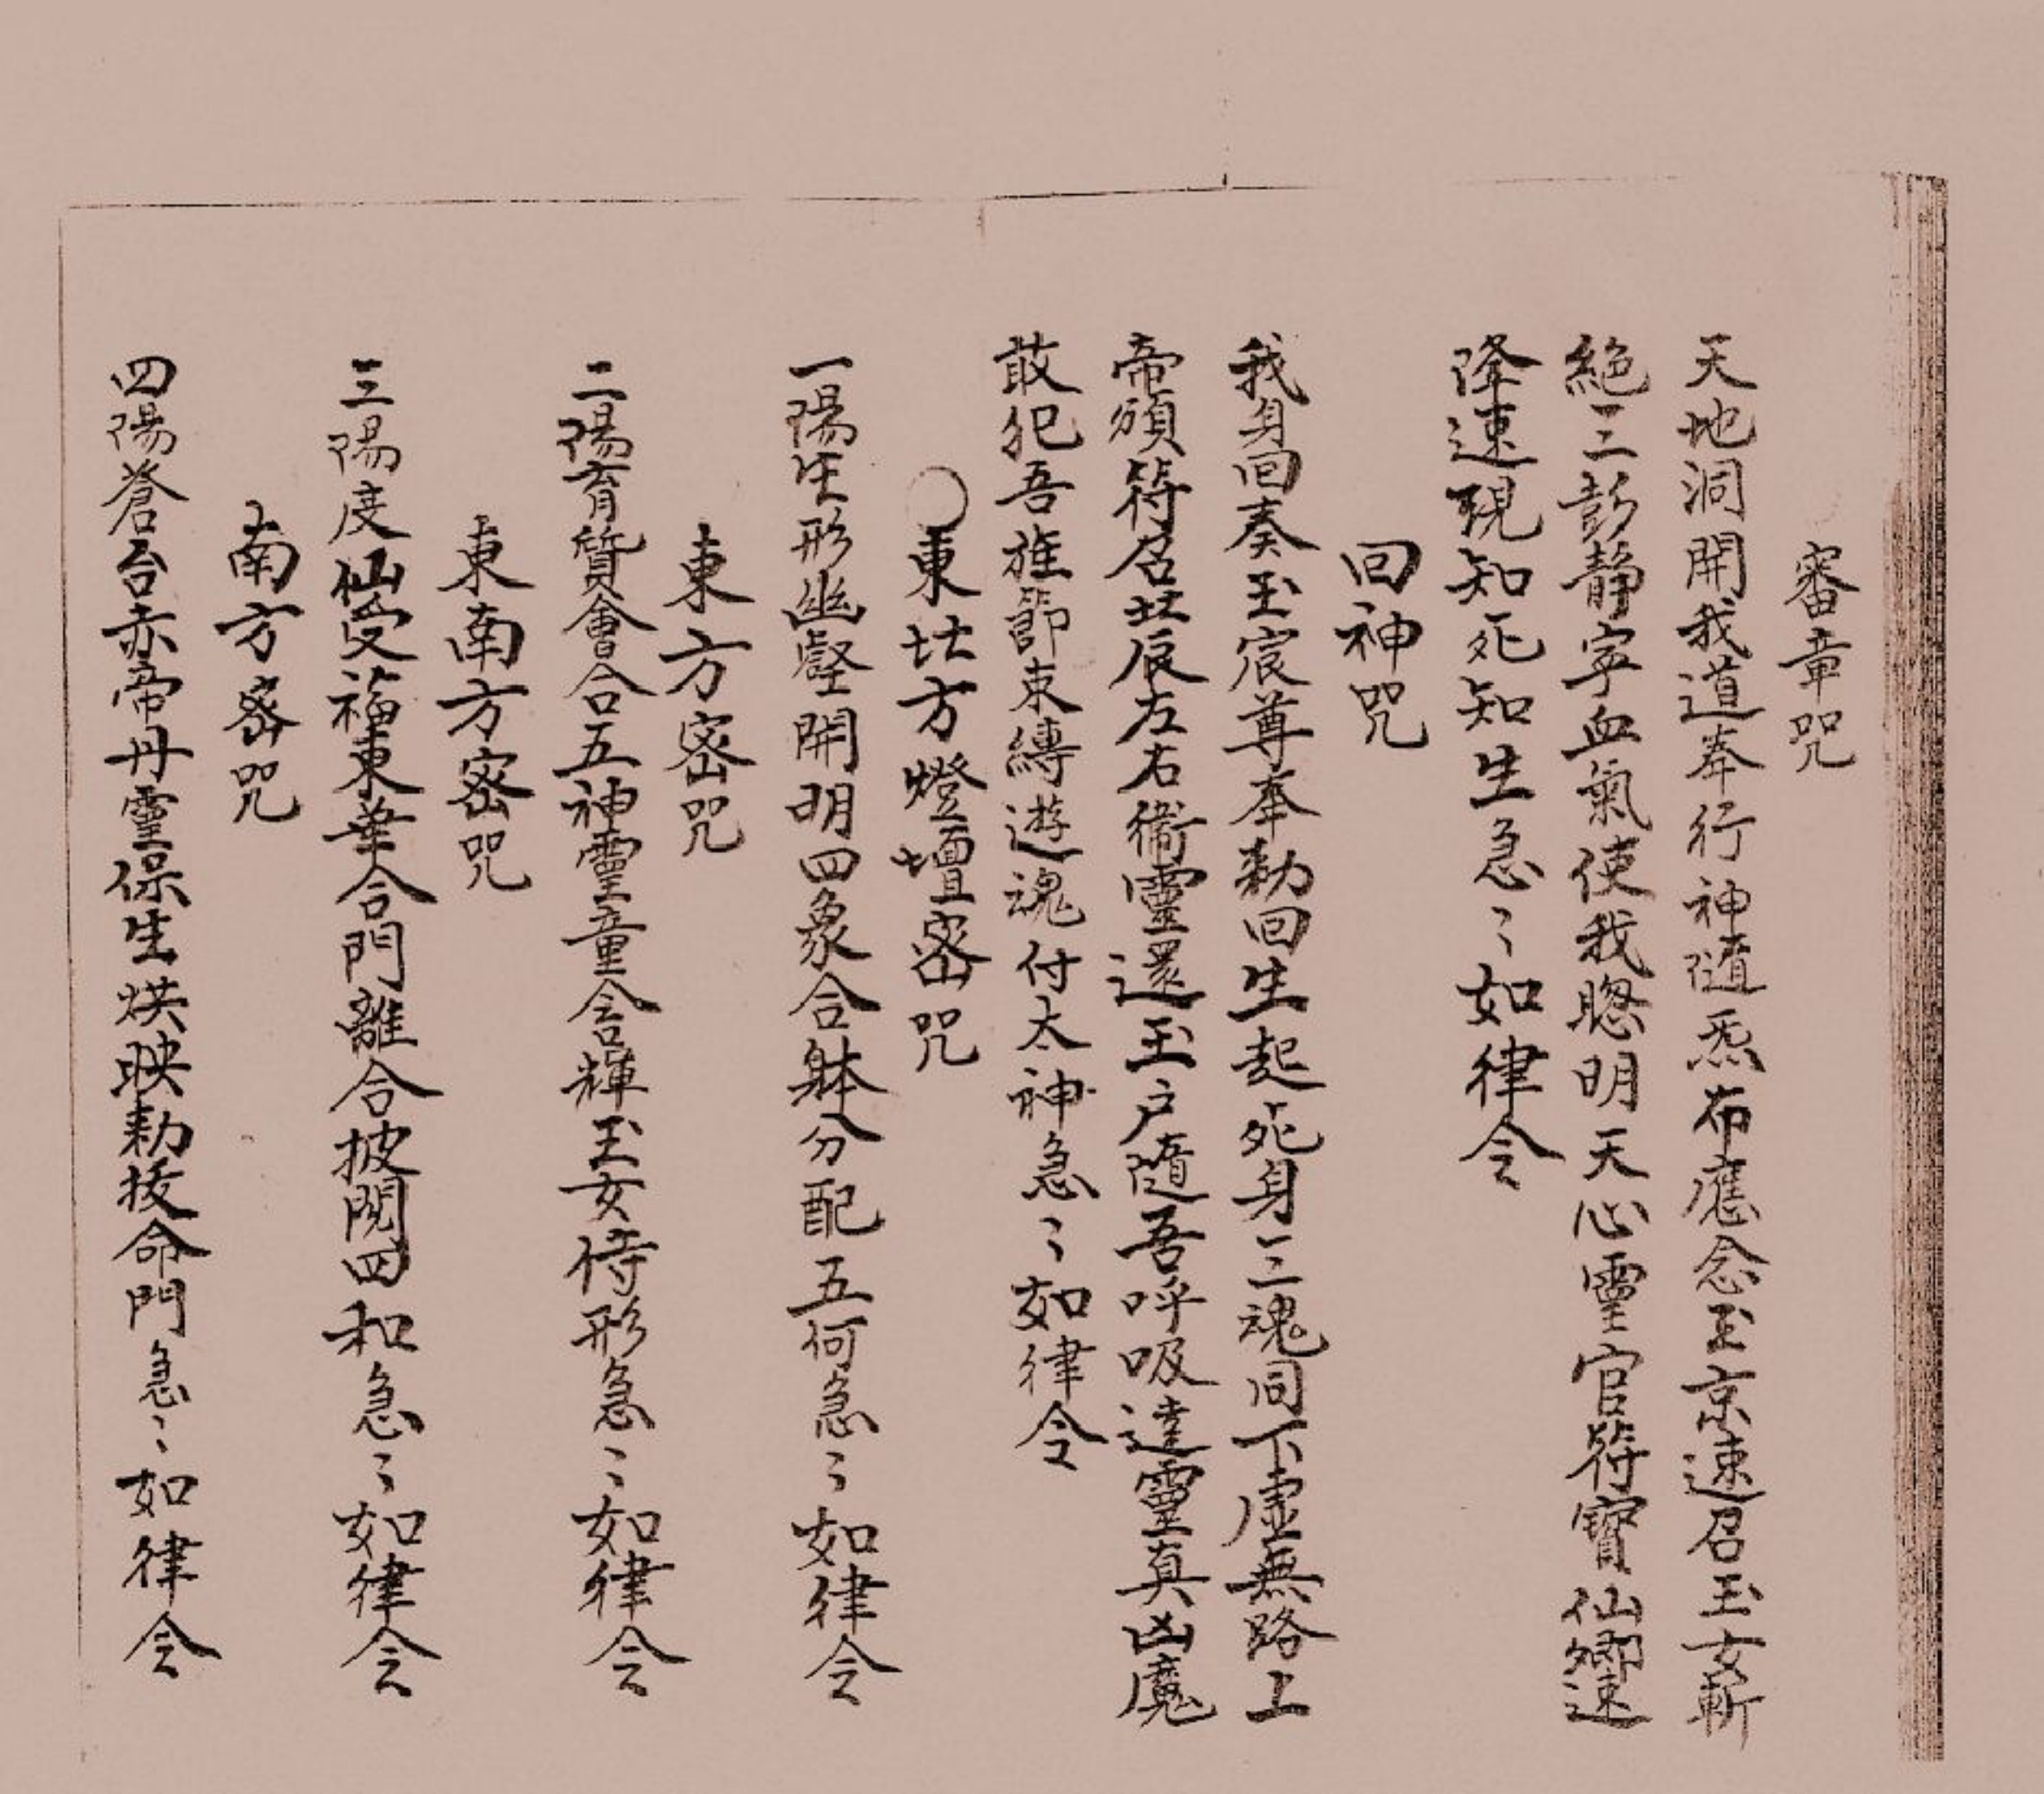 審章咒
天地洞開我道奉行神隨炁布應念玉京速召玉女斬
絕三彭静寜血氣使我聰明天心靈官符寶仙卿速
降速現知死知生急〻如律令
回神咒
我身回奏玉宸尊奉勑回生起死身三魂同下虛無路上
帝頒符召北辰左右衛靈還玉户隨吾呼吸達靈真凶魔
敢犯吾旌節束縛遊魂付太神急〻如律令
○東北方燈壇密咒
一陽生形幽壑開明四象合躰分配五何急〻如律令
東方密咒
二陽育質會合五神靈童含輝玉女侍形急〻如律令
東南方密咒
三陽度仙受福東華合門離合披閱四和急〻如律令
南方密咒
四陽蒼台赤帝丹靈保生烘映勑援命門急〻如律令